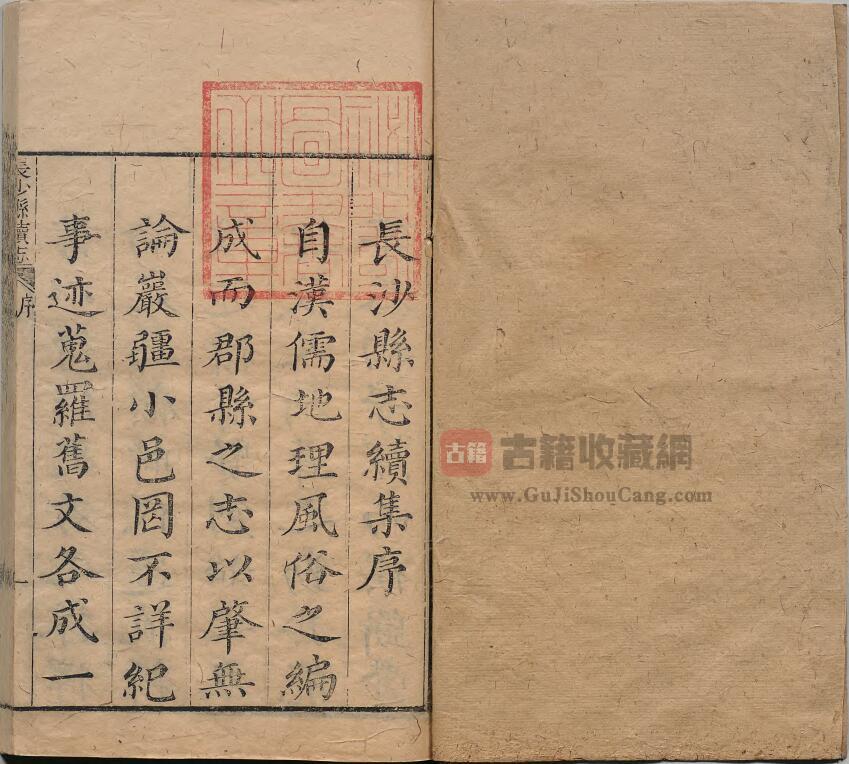 長沙縣志續集序
自漢儒地理風俗之編
成而郡縣之志以肇無
論巖疆小邑罔不詳紀
事迹蒐羅舊文各成一
長沙縣續志
序
一
古籍
古籍收藏網
www.GuJiShouCang.com